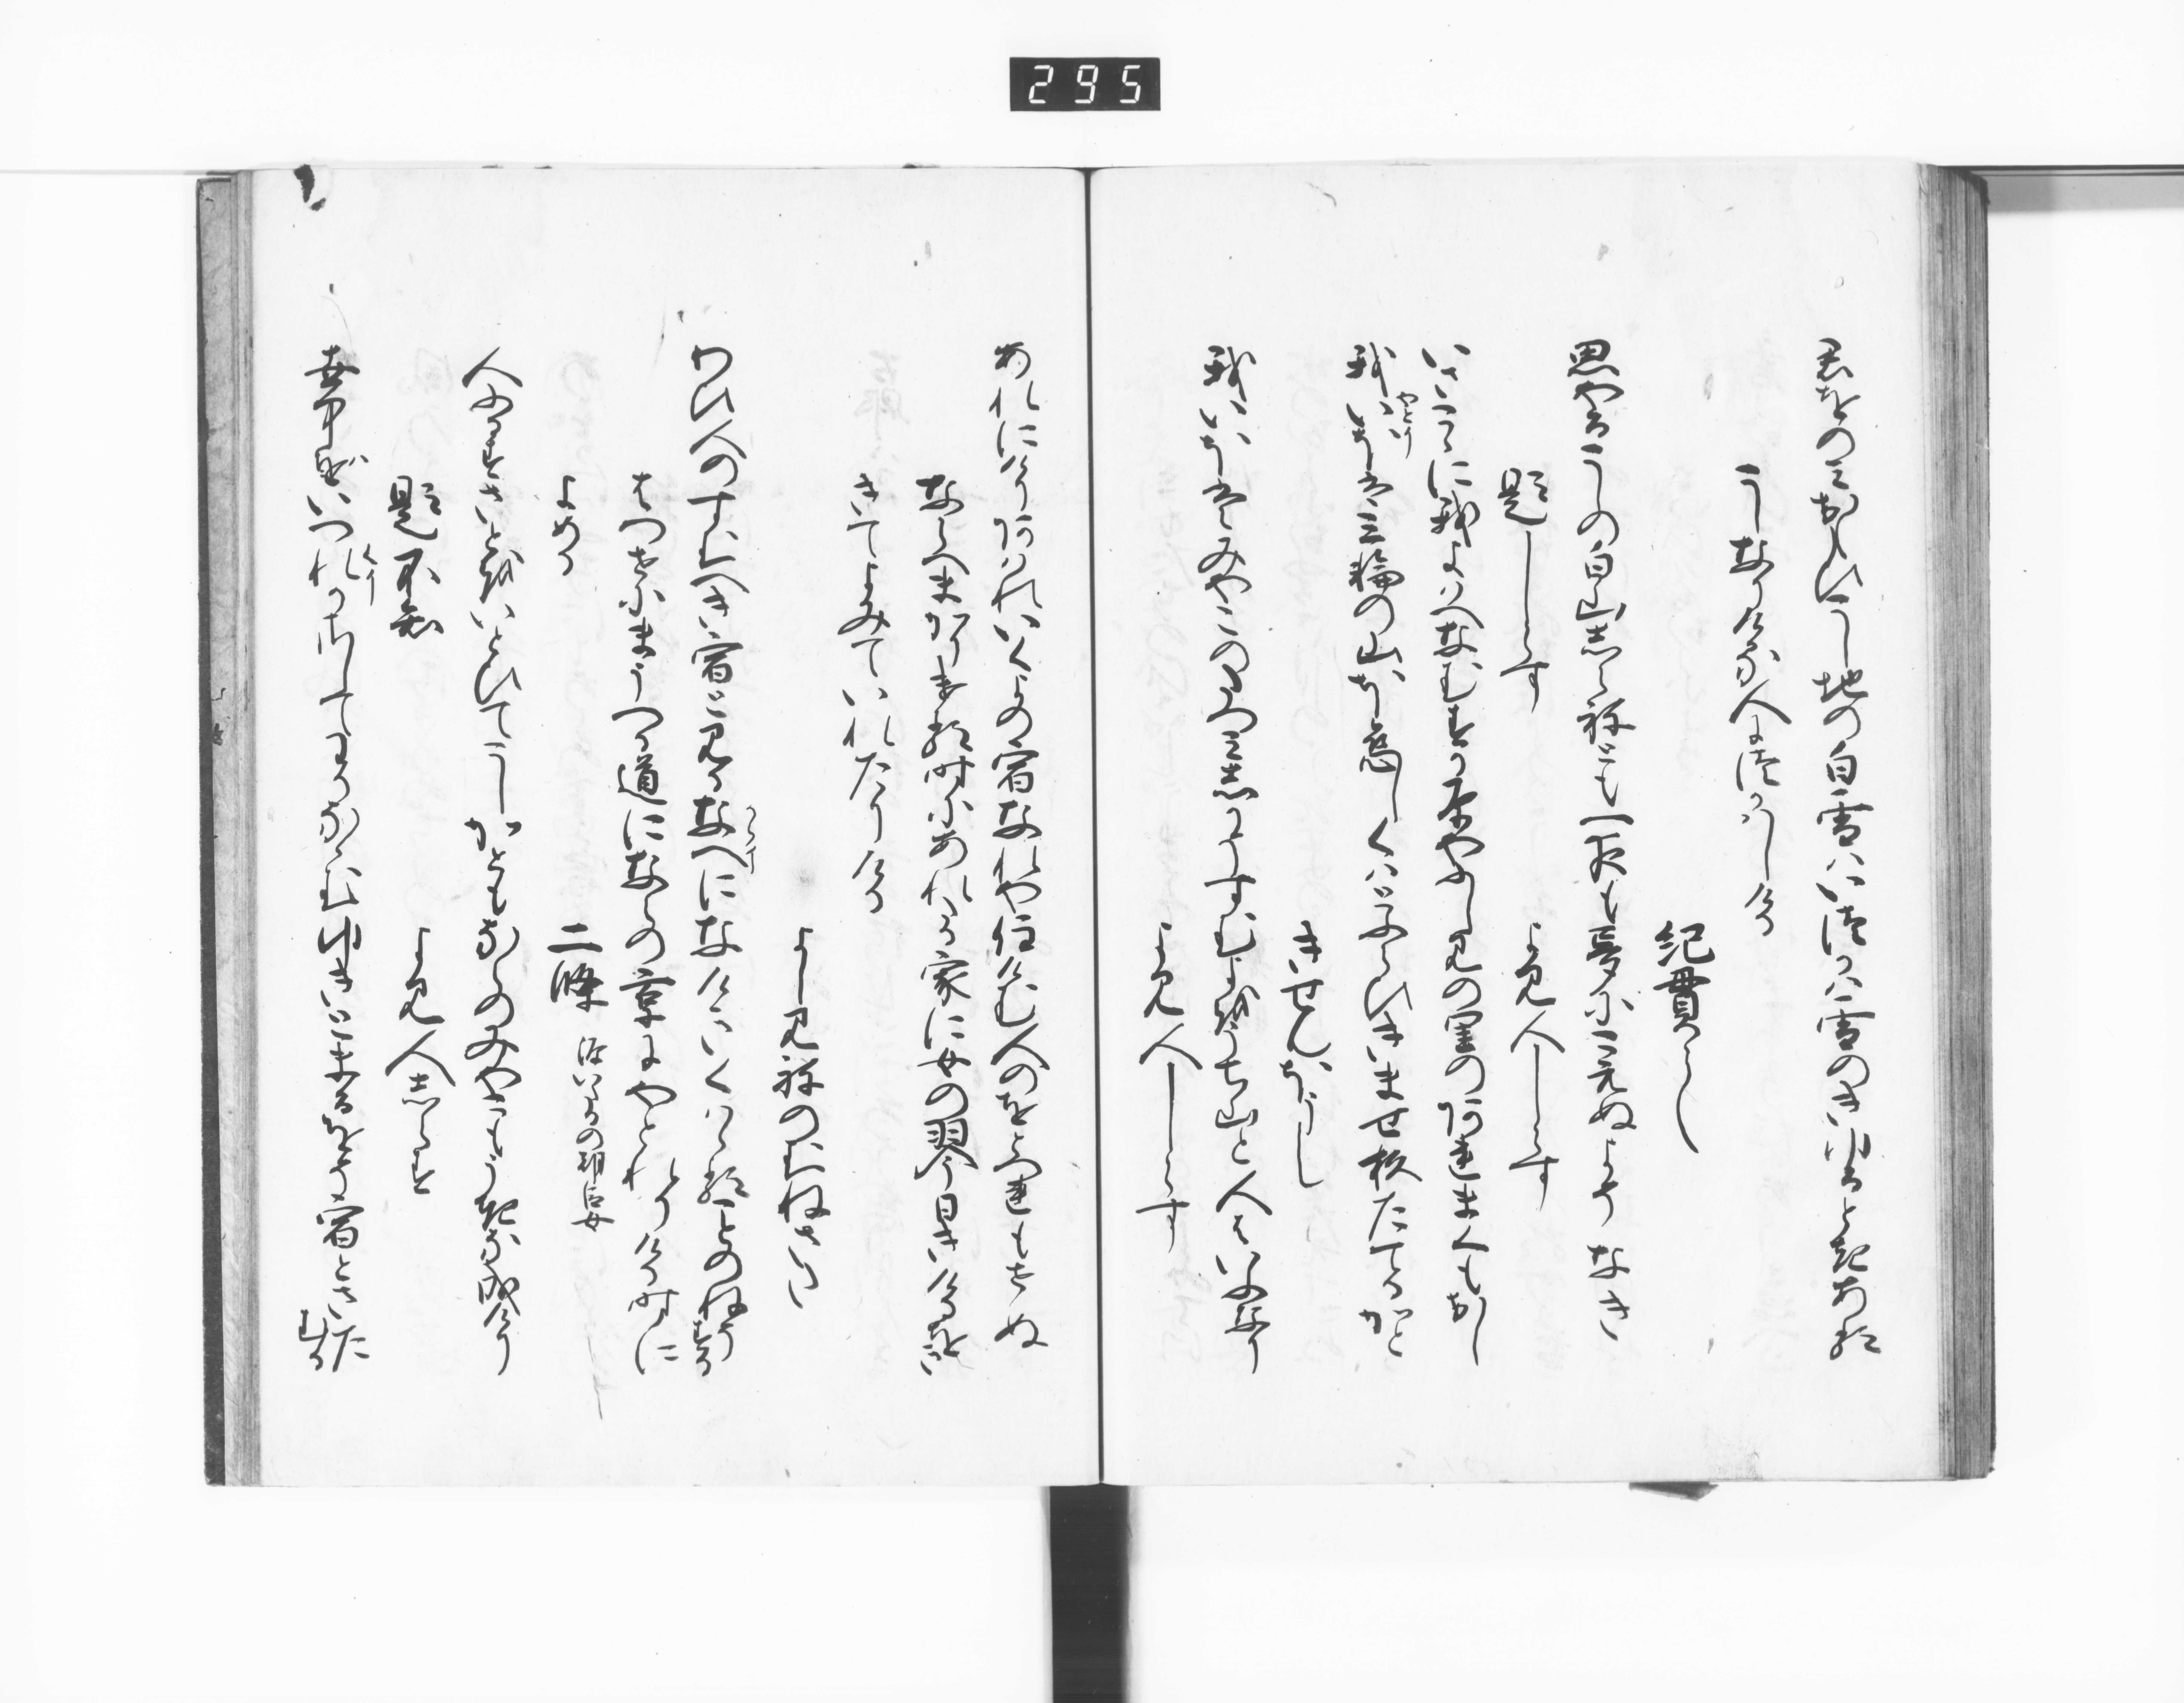 295
君をのみおもひこし地の白雪はいつかは雪のきゆると起ある
こしなりける人につかはしける
紀貫之
思やるこしの白山しらねとも一夜も夢にこえぬよそなき
題しらす
よみ人しらす
いさこゝに我よはへなむすか原やふしみの里のあれまくもおし
我いほは三輪の山もと恋しくはとふらひきませ杦たてるかと
やとり
きせんほうし
我いほはみやこのたつみしかそすむよをうち山と人はいふなり
よみ人しらす
あれにけりあはれいくよの宿なれや住けむ人のをとつれもせぬ
ならへまかりける時にあれたる家に女の琴ひきけるを
きゝてよみていれたりける
よしみねのむねさた
わひ人のすむへき宿と見るなへになけきくはゝることのねそする
はつせにまうつる道にならの京にやとれりける時に
よめる
二條
人ふるすさとをいとひてこしかともならのみやこもうきな成けり
題不知
よみ人志らす
世中はいつれかさしてわかならむ行とまるをそ宿とさたむる